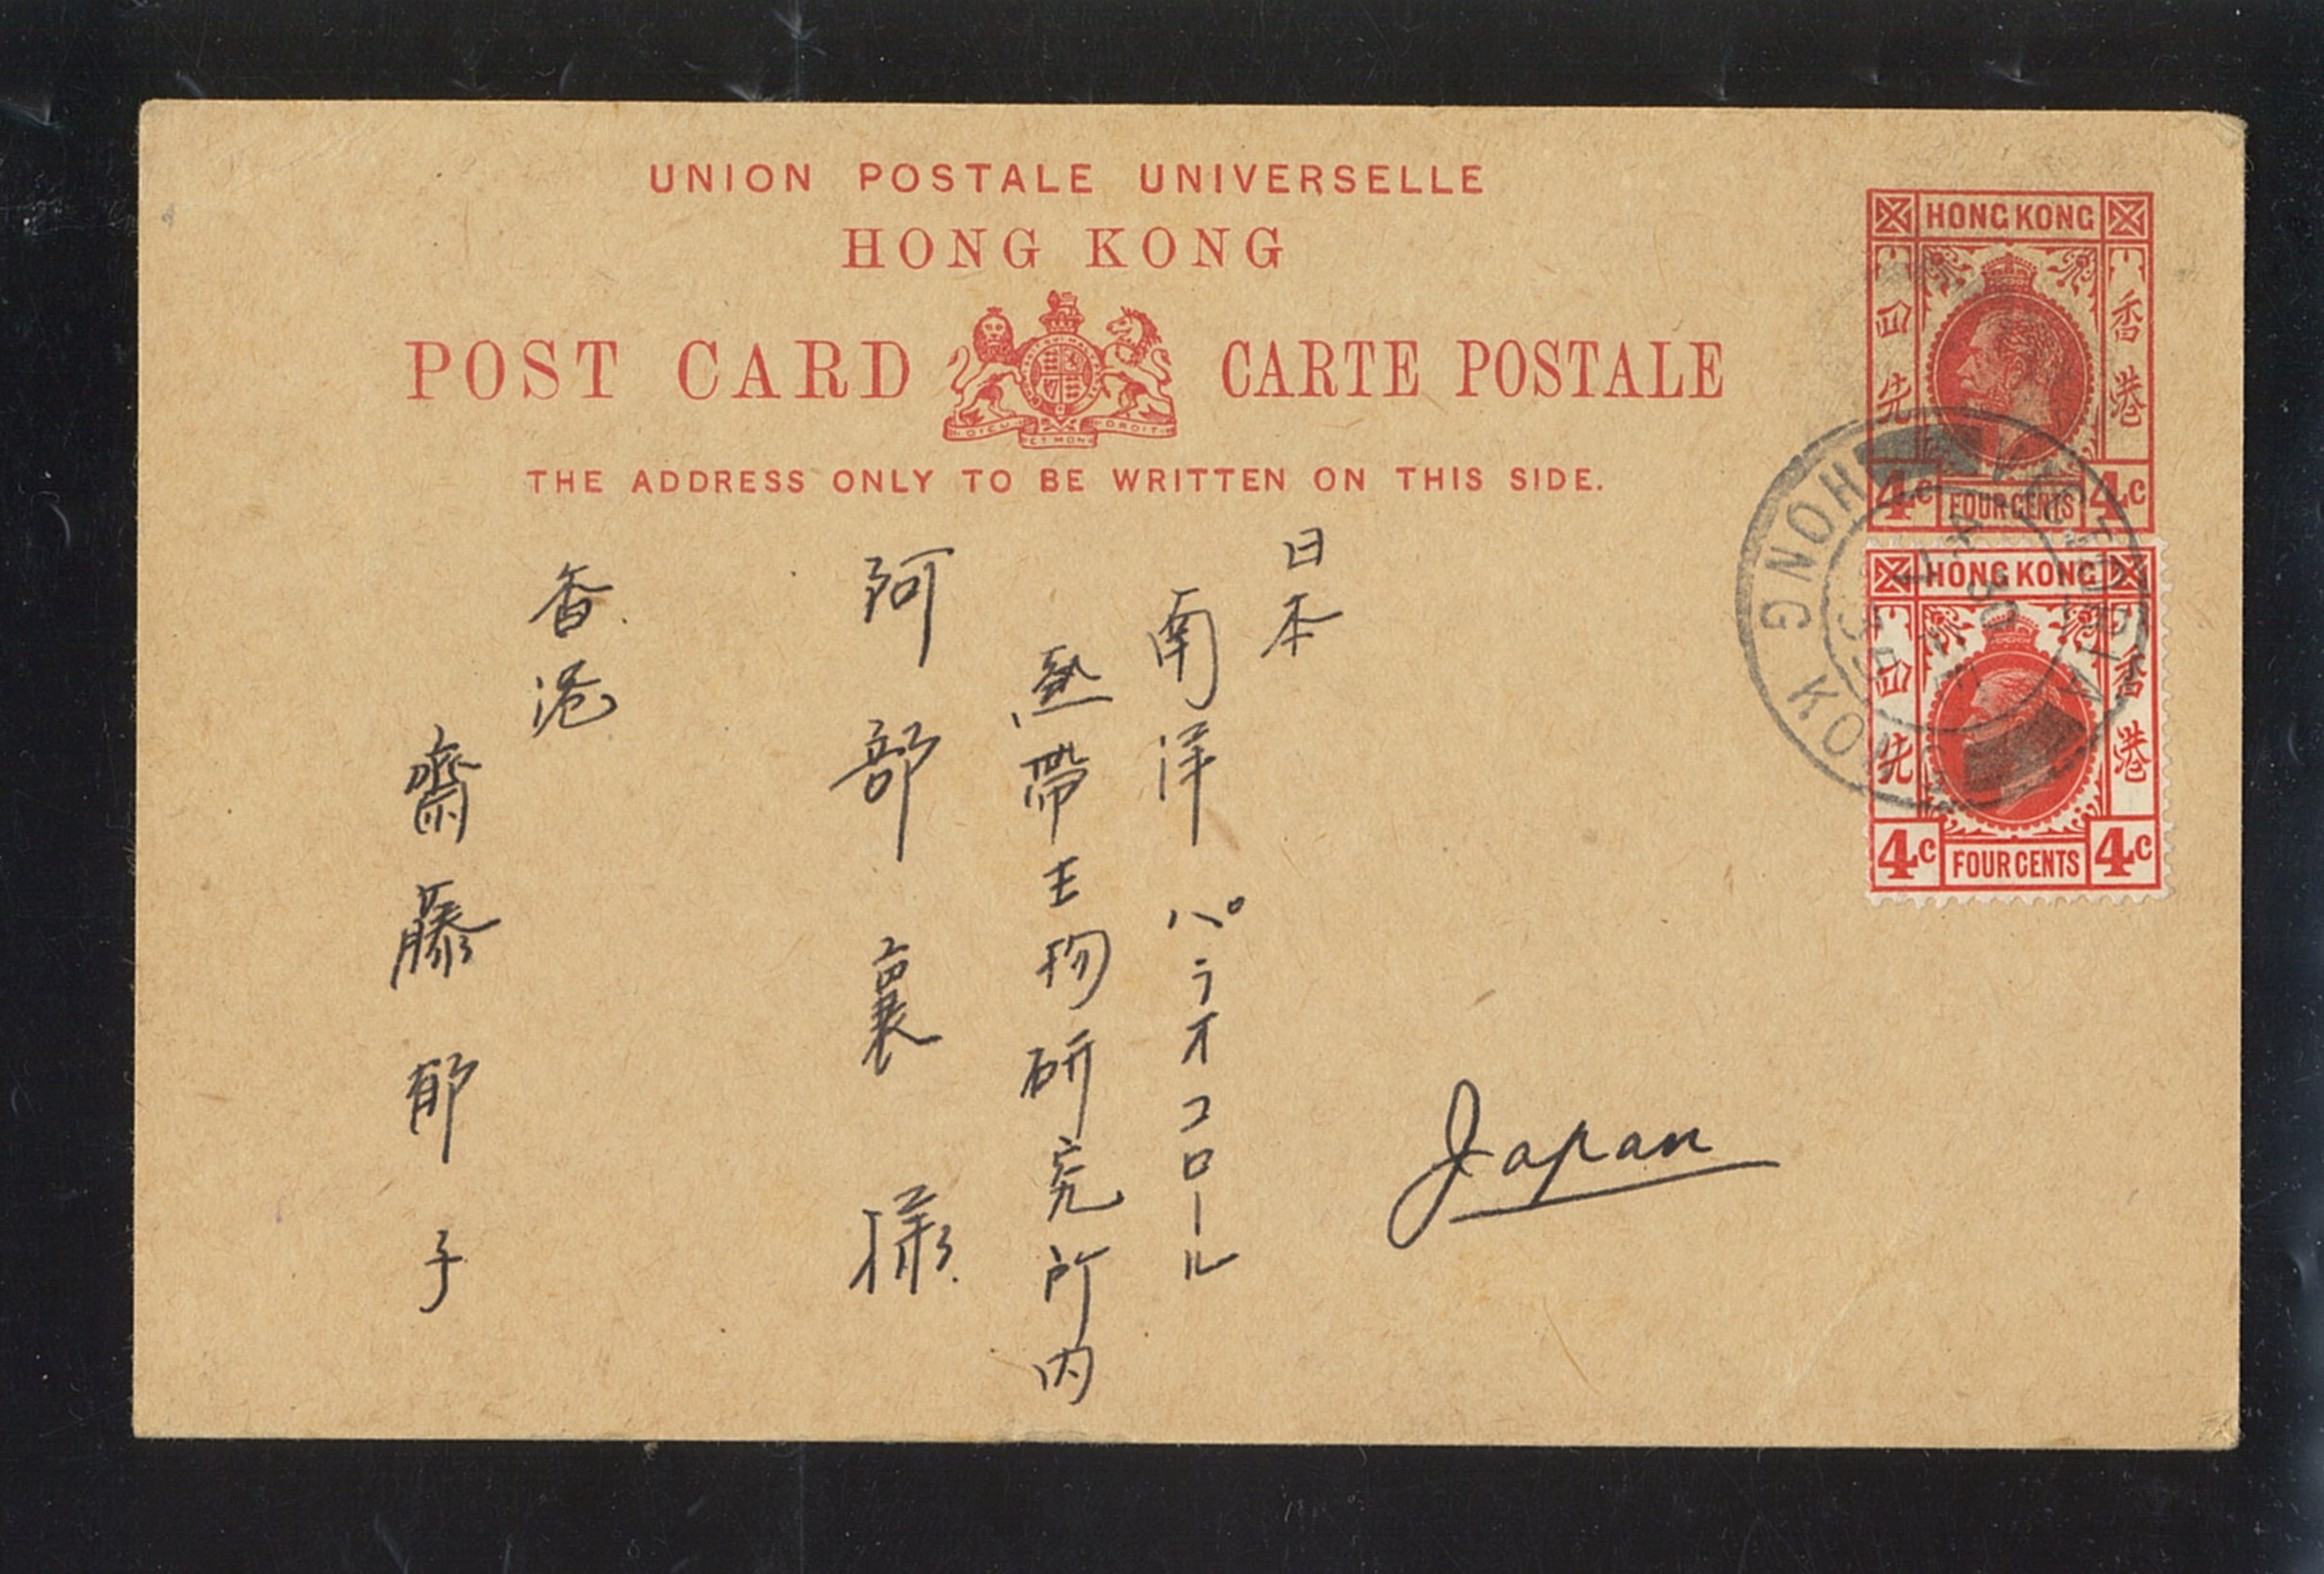 UNION POSTALE UNIVERSELLE
HONG KONG
POST CARD CARTE POSTALE
DIEU ET MON DROIT
THE ADDRESS ONLY TO BE WRITTEN ON THIS SIDE.
HONG KONG
香港
四先
4c FOUR CENTS 4c
HONG KONG
香港
四先
4c FOUR CENTS 4c
VICTORIA
HONG KONG
日本
南洋 パラオコロール
熱帶生物研究所内
阿部襄様
香港
齋藤郁子
Japan